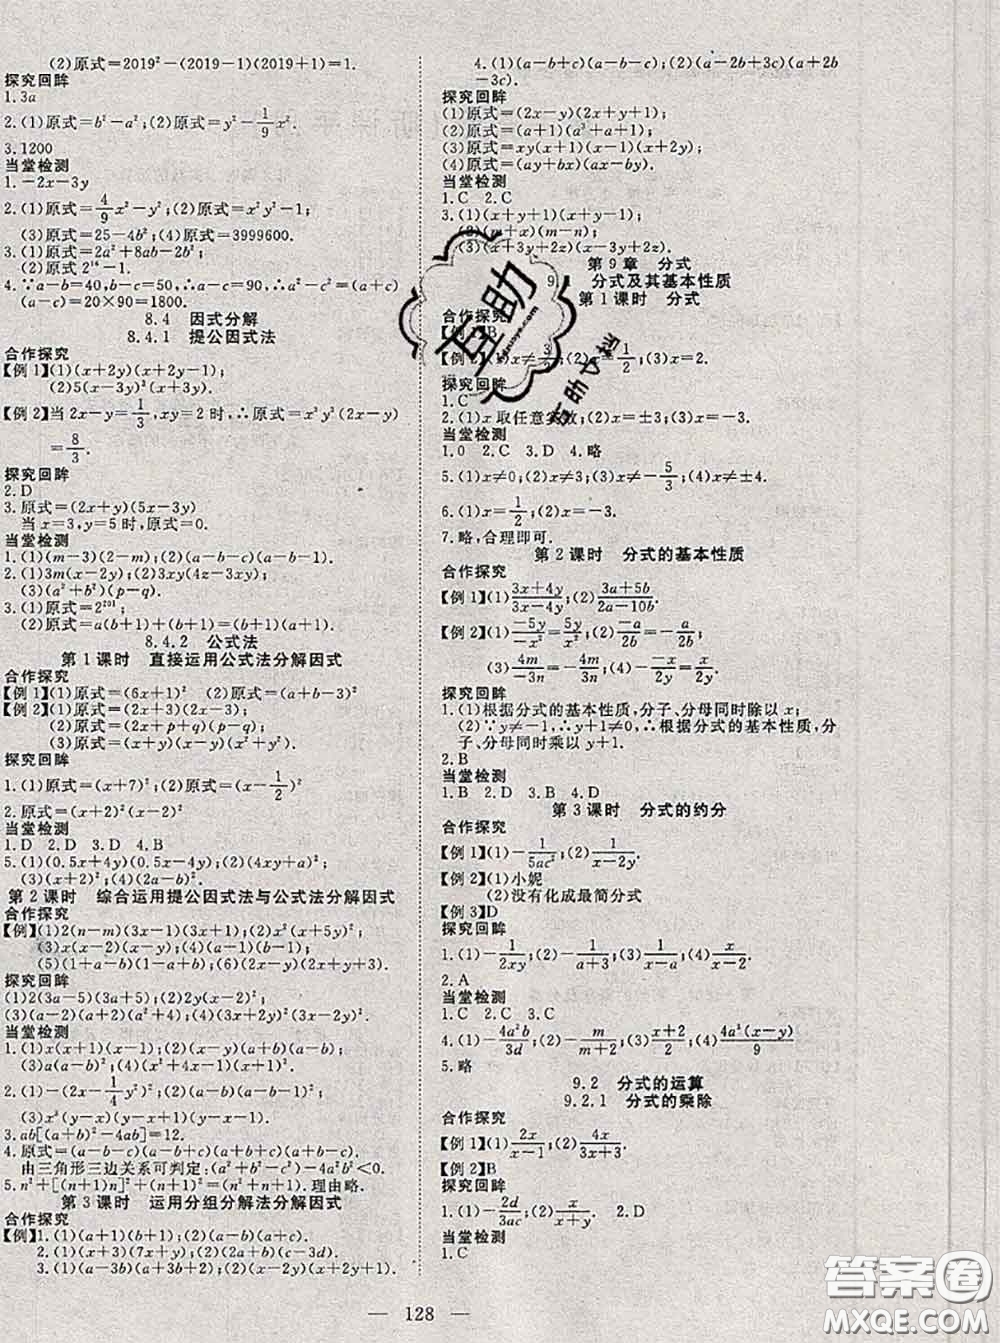 (2)原式=2019²-(2019-1)(2019+1)=1.
探究回眸
1.3a
2.(1)原式=b²-a²;(2)原式=y²-1/9x².
3.1200
当堂检测
1.-2x-3y
2.(1)原式=4/9x²-y²;(2)原式=x²y²-1;
(3)原式=25-4b²;(4)原式=3999600.
3.(1)原式=2a²+8ab-2b²;
(2)原式 2¹⁶-1;
4.∵a-b=40,b-c=50,∴a-c=90,∴a²-c²=(a+c)
(a-c)=20×90=1800.
8.4 因式分解
8.4.1 提公因式法
合作探究
【例1】(1)(x+2y)(x+2y-1);
(2)5(x-3y)²(x+3y);
【例2】当2x-y=1/3,xy=2时,∴原式=x³y³(2x-y)
=8/3.
探究回眸
2.D
3.原式=(2x+y)(5x-3y)
当x=3,y=5时,原式=0.
当堂检测
1.(1)(m-3)(2-m);(2)(a-b-c)(a-b-1).
2.(1)3m(x-2y);(2)3xy(4z-3xy);
(3)(a²+b²)(p-q).
3.(1)原式=2²⁰¹;
(2)原式=a(b+1)+(b+1)=(b+1)(a+1)
8.4.2 公式法
第1课时 直接运用公式法分解因式
合作探究
【例1】(1)原式=(6x+1)² (2)原式=(a+b-3)²
【例2】(1)原式=(2x+3)(2x-3);
(2)原式=(x+p+q)(x-p-q);
(3)原式=(x+y)(x-y)(x²+y²).
探究回眸
1.(1)原式=(x+7)²;(2)原式=(x-1/2)²
2.原式=(x+2)²(x-2)²
当堂检测
1.D 2.D 3.D 4.B
5.(1)(0.5x+4y)(0.5x-4y);(2)(4y+a)²;
(3)(a+b+c)²;(4)(2a-b)².
第2课时 综合运用提公因式法与公式法分解因式
合作探究
【例】(1)2(n-m)(3x-1)(3x+1);(2)x²(x+5y)²;
(3)x(x-2)(x-y);(4)(a-1)(b-1)
(5)(1+a-b)(1-a+b);(6)(2x-y)(2x-y+3).
探究回眸
(1)2(3a-5)(3a+5);(2)2y(x-2)²;
(3)(a-2)(a+2)(a²+4);(4)(a-b+5)².
当堂检测
1.(1)x(x+1)(x-1);(2)(x-y)(a-b)(a+b)
(3)a(a-b)²;(4)(2x-y)².
2.(1)-(2x-1/4y)²;(2)(a-b)(4x-y)(4x+y)
(3)x³(y-x)(y+x);(4)(x-y-1)²
3.ab[(a+b)²-4ab]=12.
4.原式=(a+b+c)(a+b-c)(a-b+c)(a-b-c)
由三角形三边关系可判定:(a²+b²-c²)-4a²b²<0.
5.n²+[(n+1)n]²+(n+1)²=[n(n+1)+1]².理由略.
第3课时 运用分组分解法分解因式
合作探究
【例】1.(1)(a+1)(b+1);(2)(ay+b)(a+c)
3.(1)(x+3)(7x+y);(2)(x+2y+1)(x-2y-1).
3.(1)(a-1)(a²+2);(2)(a-b-1)(a-b+c).
4.(1)(a-b+c)(a-b-c);(2)(a-2b+3c)(a+2b
-3c).
探究回眸
(1)原式=(2x-y)(2x+y+1);
(2)原式=(a+1)(a³+1)(a-1);
(3)原式=xy(x+1)(x-1)(x+y);
(4)原式=(ay+bx)(ax-by).
当堂检测
1.C 2.C
3.(1)(x+y+1)(x+y-1);
(2)(m+x)(m-n);
(3)(x+3y+2z)(x-3y+2z).
第9章 分式
9. 分式及其基本性质
第1课时 分式
合作探究
【例1】B
【例2】(1)x≠3/2;(2)x=-1/2;(3)x=2.
探究回眸
1.C
2.(1)x取任意实数;(2)x=±3;(3)x=-3.
当堂检测
1.0 2.C 3.D 4.略
5.(1)x≠0;(2)x≠3;(3)x≠-5/3;(4)x≠±2
6.(1)x=1/2;(2)x=-3.
7.略,合理即可.
第2课时 分式的基本性质
合作探究
【例1】(1)3x+4y/3x-4y;(2)3a+5b/2a-10b.
【例2】(1)-5y/-x²=5y/x²;(2)-a/2b=-a/2b;
(3)4m/-3n=-4m/3n;(4)-x/-2y=x/2y.
探究回眸
1.(1)根据分式的基本性质,分子、分母同时除以x;
(2)∵y≠-1,∴y+1≠0,∴根据分式的基本性质,分
子、分母同时乘以y+1.
2.B
当堂检测
1.B 2.D 3.B 4.D
第3课时 分式的约分
合作探究
【例1】(1)-1/5ac²;(2)1/x-2y.
【例2】(1)小妮
(2)没有化成最简分式
【例3】D
探究回眸
1.(1)-1/2xy;(2)-1/a+3;(3)1/x-a;(4)x/x-y
2.A
当堂检测
1.C 2.C 3.C
4.(1)-4a²b/3d;(2)-m/m+2;(3)x+2/x-2;(4)4a²(x-y)/9
5.略
9.2 分式的运算
9.2.1 分式的乘除
合作探究
【例1】(1)2x/x-1;(2)4x/3x+3y;
【例2】B
探究回眸
1.(1)-2d/3ac;(2)x/x+y. 2.D
当堂检测
1.C
— 128 —
互助
答案圈
MXQE.COM